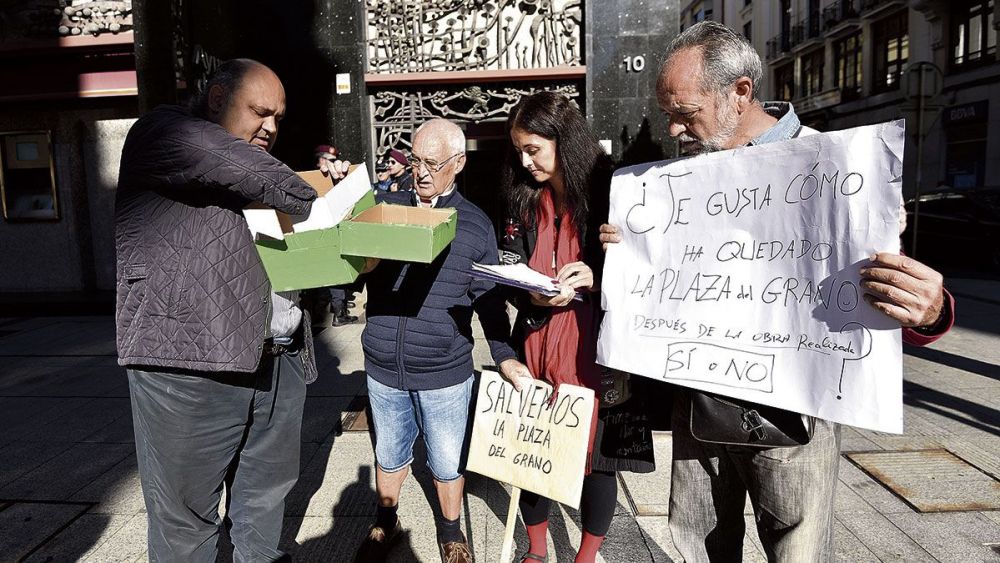 10
BBVA
¿TE GUSTA CÓMO
HA QUEDADO
LA PLAZA del GRANO
DESPUÉS DE LA OBRA Realizada ?
SÍ o NO
SALVEMOS
LA PLAZA
DEL GRANO